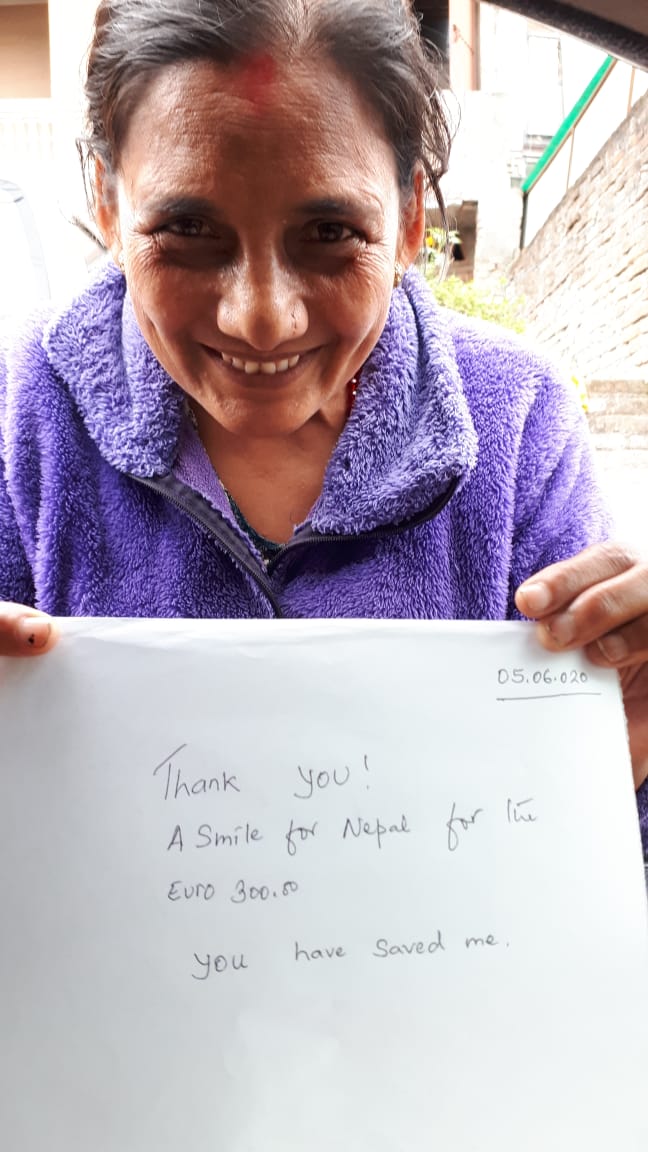 05.06.020
Thank you!
A Smile for Nepal for the
Euro 300.00
you have saved me.